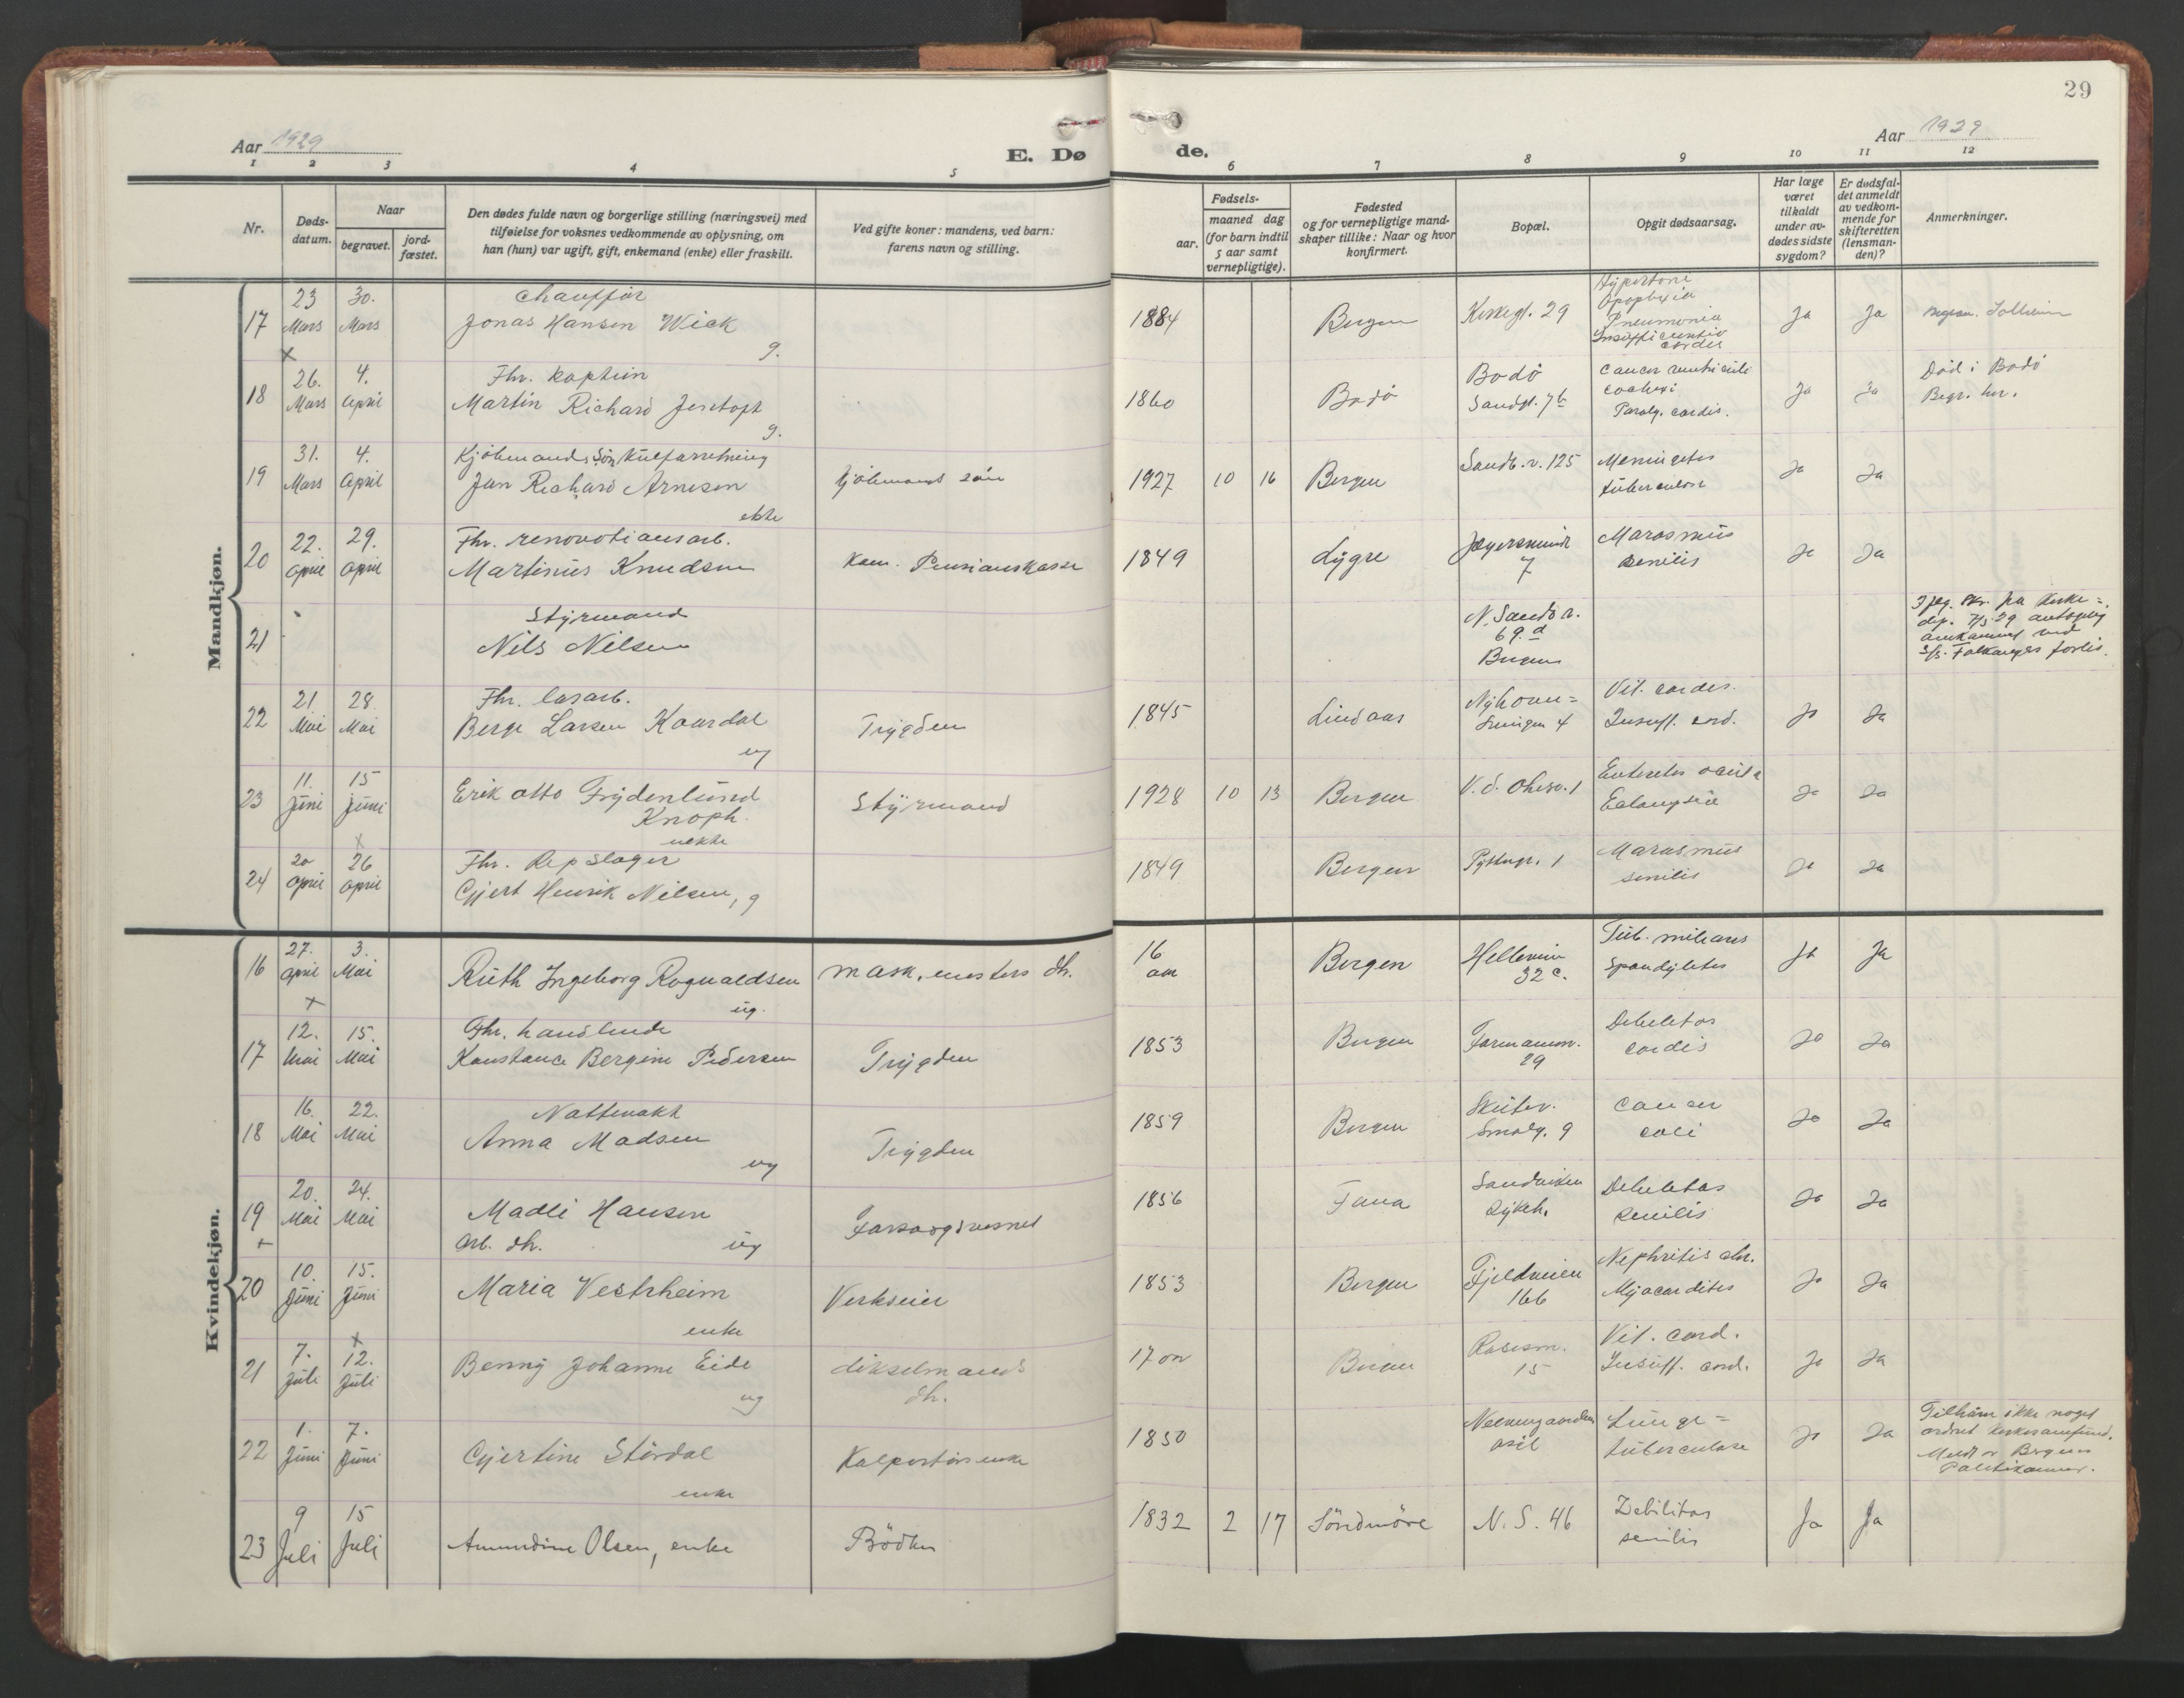 29
Aar 1929
E. Dø
de.
Aar 1929
1 2 3 4 5 6 7 8 9 10 11 12
Nr.
Døds-
datum.
Naar
begravet.
jord-
fæstet.
Den dødes fulde navn og borgerlige stilling (næringsvei) med
tilføielse for voksnes vedkommende av oplysning, om
han (hun) var ugift, gift, enkemand (enke) eller fraskilt.
Ved gifte koner: mandens, ved barn:
farens navn og stilling.
Fødsels-
aar.
maaned dag
(for barn indtil
5 aar samt
vernepligtige).
Fødested
og for vernepligtige mand-
skaper tillike: Naar og hvor
konfirmert.
Bopæl.
Opgit dødsaarsag.
Har læge
været
tilkaldt
under av-
dødes sidste
sygdom?
Er dødsfal-
det anmeldt
av vedkom-
mende for
skifteretten
(lensman-
den)?
Anmerkninger.
Mandkjøn.
17
23
Mars
30.
Mars
Chauffør
Jonas Hansen Wiek
g.
1884
Bergen
Kirkegt. 29
Hypertoni
Apoplexia
Pneumonia
Insufficientia
cordis
Ja
Ja
18
26.
Mars
4.
April
Fhr. kaptein
Martin Richard
g.
1860
Bodö
Bodö
Sandgt. 7b
Cancer ventriculi
Paraly. cordis.
Ja
Ja
Död i Bodö
Begr. her.
19
31.
Mars
4.
April
Kjöbmands Sön
Jan Richard Arnesen
ekte
Kjöbmands sön
1927
10
16
Bergen
Sandv. v. 125
Meningitis
tuberculose
Ja
Ja
20
22.
April
29.
April
Fhr. renovationsarb.
Martinus Knudsen
Kom. Pensionskasse
1849
Lygre
7
Marasmus
senilis
Ja
Ja
21
Styrmand
Nils Nilsen
N. Sandv.
69 d
Bergen
22
21.
Mai
28.
Mai
Fhr. løsarb.
Berge Larsen Kaardal
ug
Trygden
1845
Lindaas
Vit. cordis.
Insuff. cord.
Ja
Ja
23
11.
Juni
15
Juni
Erik Otto Frydenlund
Knoph.
uekte
Styrmand
1928
10
13
Bergen
Ja
Ja
24
20
April
26
April
Fhr. Repslager
Gjert Henrik Nilsen, g
1849
Bergen
Marasmus
senilis
Ja
Ja
Kvindekjøn.
16
27.
April
3.
Mai
Ruth Ingeborg Rognaldsen
ug.
mask.mesters dh.
16
aar
Bergen
32 c.
Tub. miliaris
Spondylitis
Ja
Ja
17
12.
Mai
15.
Mai
Fhr. handlende
Konstance Bergine Pedersen
Trygden
1853
Bergen
29
Debilitas
cordis
Ja
Ja
18
16.
Mai
22.
Mai
Nattevakt
Anna Madsen
ug
Trygden
1859
Bergen
Skutev.
Smalg. 9
Cancer
coli
Ja
Ja
19
20.
Mai
24.
Mai
Madli Hansen
Arb. dh.
ug
Forsorgsvesnet
1856
Fana
Sandviken
Sykeh.
Debilitas
senilis
Ja
Ja
20
10.
Juni
15.
Juni
Maria Vestrheim
enke
Verkseier
1853
Bergen
Fjeldveien
166
Nephritis chr.
Myocarditis
Ja
Ja
21
7.
Juli
12.
Juli
Benny Johanne Eide
ug
dikselmands
dh.
Bergen
15
Vit. cord.
Insuff. cord.
Ja
Ja
22
1.
Juni
7.
Juni
Gjertine Stördal
enke
Kolportörs enke
1850
asil
Lunge-
tuberculose
Ja
Ja
Tilhörer ikke noget
ordnet kirkesamfund.
Meldt v. Bergens
Politikammer.
23
9
Juli
15
Juli
Amundine Olsen, enke
Bödker
1832
2
17
Söndmöre
N. S. 46
Debilitas
senilis
Ja
Ja